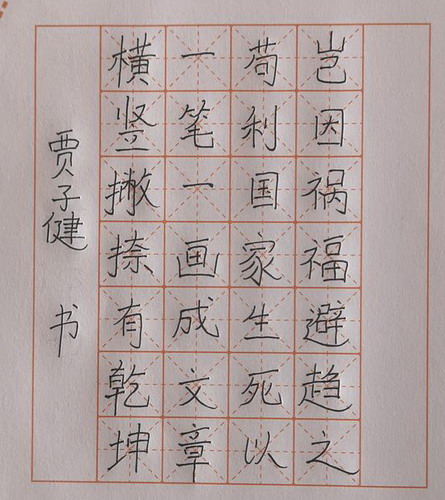 横竖撇捺有乾坤
一笔一画成文章
苟利国家生死以
岂因祸福避趋之
贾子健 书